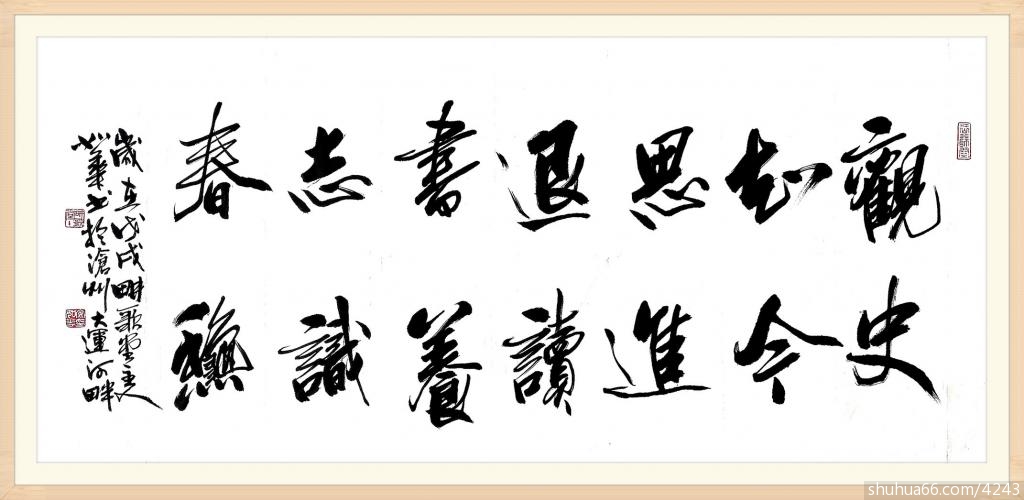 觀史
知今
思進
退讀
書養
志識
春龝
歲在戊戌畊歌堂主人
華書於滄州大運河畔
shuhua66.com/4243